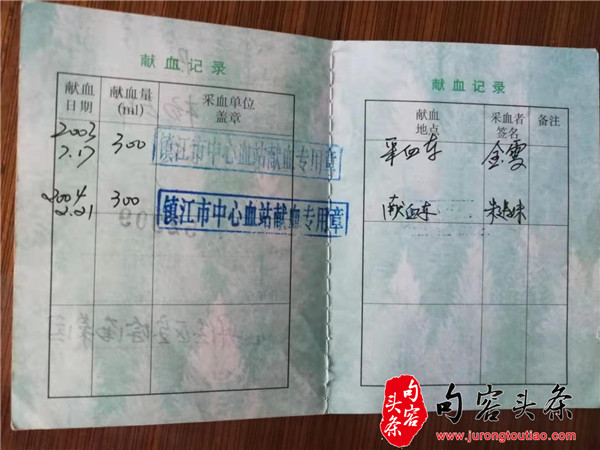 献血记录
献血日期 献血量(ml) 采血单位盖章
2003 7.17 300 镇江市中心血站献血专用章
2004 2.21 300 镇江市中心血站献血专用章
献血记录
献血地点 采血者签名 备注
采血车 金雯
献血车
句容头条
句容头条
www.jurongtoutiao.com